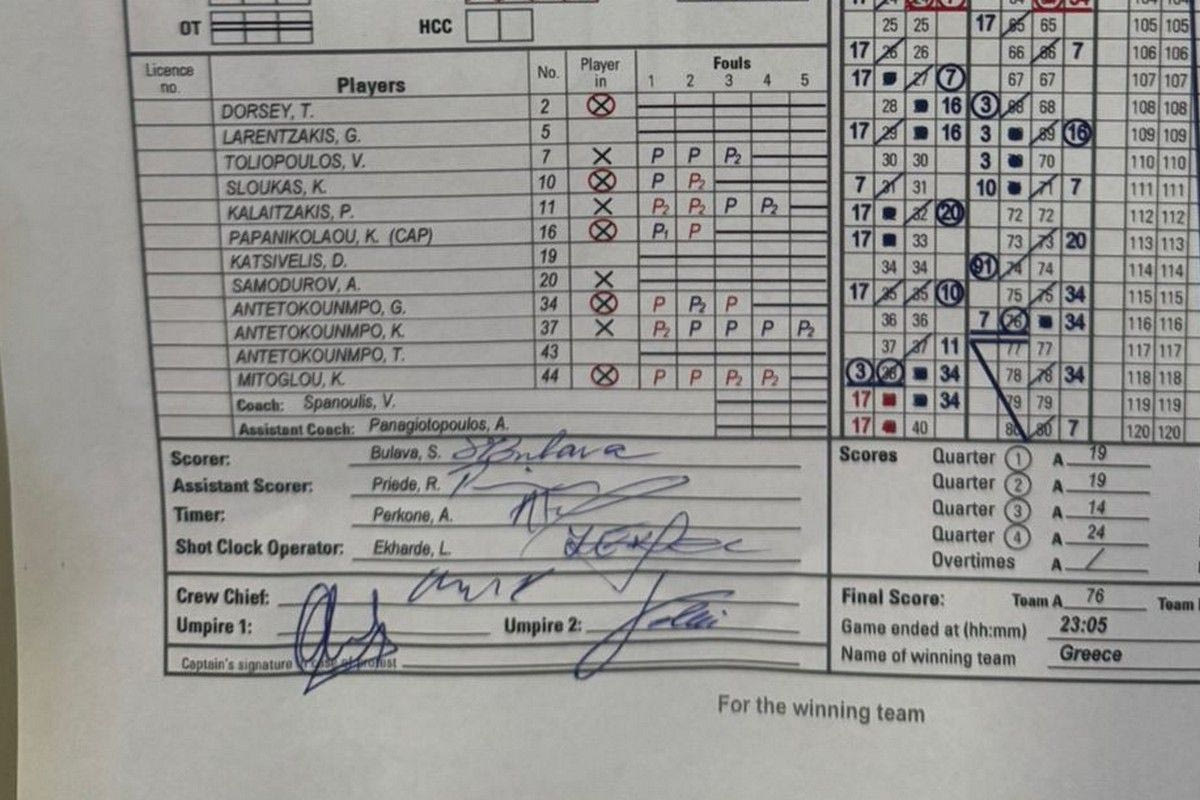 OT
HCC
Licence no. Players No. Player in Fouls 1 2 3 4 5
DORSEY, T. 2 ⊗
LARENTZAKIS, G. 5
TOLIOPOULOS, V. 7 X P P P2
SLOUKAS, K. 10 ⊗ P P2
KALAITZAKIS, P. 11 X P2 P2 P P2
PAPANIKOLAOU, K. (CAP) 16 ⊗ P1 P
KATSIVELIS, D. 19
SAMODUROV, A. 20 X
ANTETOKOUNMPO, G. 34 ⊗ P P2 P
ANTETOKOUNMPO, K. 37 X P2 P P P P2
ANTETOKOUNMPO, T. 43
MITOGLOU, K. 44 ⊗ P P P2 P2
Coach: Spanoulis, V.
Assistant Coach: Panagiotopoulos, A.
Scorer: Bulava, S.
Assistant Scorer: Priede, R.
Timer: Perkone, A.
Shot Clock Operator: Ekharde, L.
Crew Chief:
Umpire 1: Umpire 2:
Captain's signature in case of protest
25 25 17 65 65 105 105
17 26 26 66 66 7 106 106
17 27 7 67 67 107 107
28 16 3 68 68 108 108
17 29 16 3 69 16 109 109
30 30 3 70 110 110
7 31 31 10 71 7 111 111
17 32 20 72 72 112 112
17 33 73 73 20 113 113
34 34 91 74 74 114 114
17 35 35 10 75 75 34 115 115
36 36 7 76 34 116 116
37 37 11 77 77 117 117
3 38 34 78 78 34 118 118
17 34 79 79 119 119
17 40 80 80 7 120 120
Scores Quarter 1 A 19
Quarter 2 A 19
Quarter 3 A 14
Quarter 4 A 24
Overtimes A /
Final Score: Team A 76 Team
Game ended at (hh:mm) 23:05
Name of winning team Greece
For the winning team